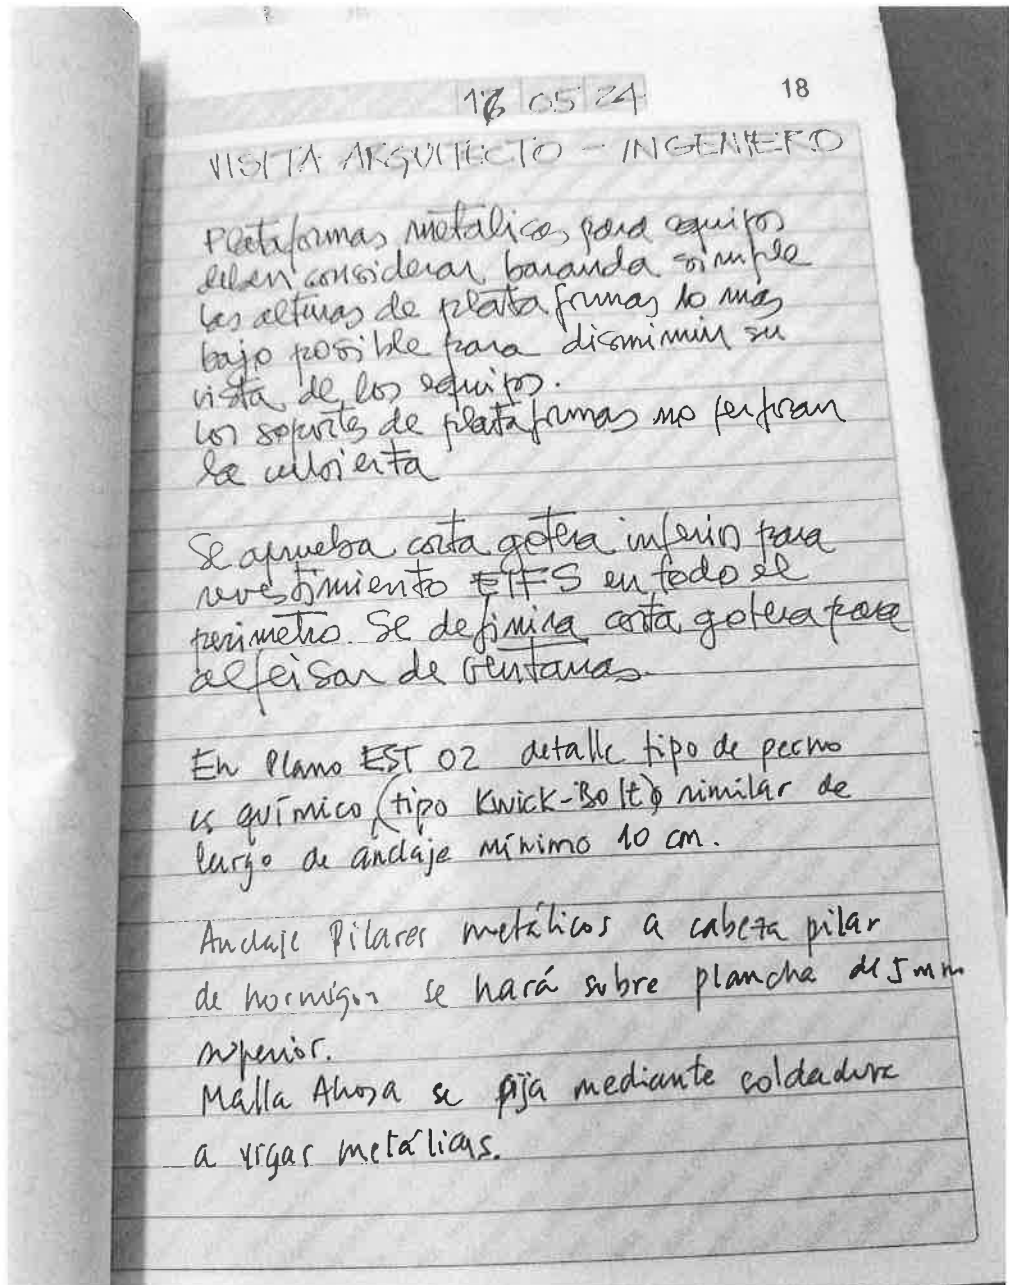 05 24
18
VISITA ARQUITECTO - INGENIERO
Plataformas metálicas para equipos
deben considerar baranda simple
las alturas de plataformas lo más
bajo posible para disminuir su
vista de los equipos.
Los soportes de plataformas no perforan
la cubierta
Se aprueba corta gotera inferior para
revestimiento EIFS en todo el
perimetro. Se definira corta gotera para
alfeisar de ventanas.
En Plano EST 02 detalle tipo de perno
es químico (tipo Kwick-Bolt) o similar de
largo de anclaje mínimo 10 cm.
Anclaje Pilares metálicos a cabeza pilar
de hormigon se hará sobre plancha de 5 mm
superior.
Malla se fija mediante soldadura
a vigas metálicas.